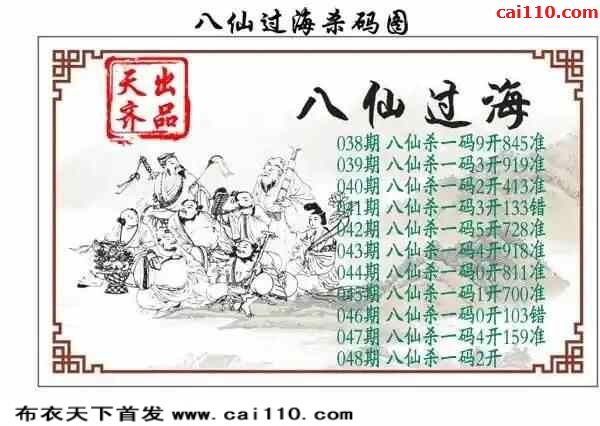 cai110.com
八仙过海杀码图
天齐出品
八仙过海
038期 八仙杀一码9开845准
039期 八仙杀一码3开919准
040期 八仙杀一码2开413准
041期 八仙杀一码3开133错
042期 八仙杀一码5开728准
043期 八仙杀一码4开918准
044期 八仙杀一码0开811准
045期 八仙杀一码1开700准
046期 八仙杀一码0开103错
047期 八仙杀一码4开159准
048期 八仙杀一码2开
布衣天下首发 www.cai110.com